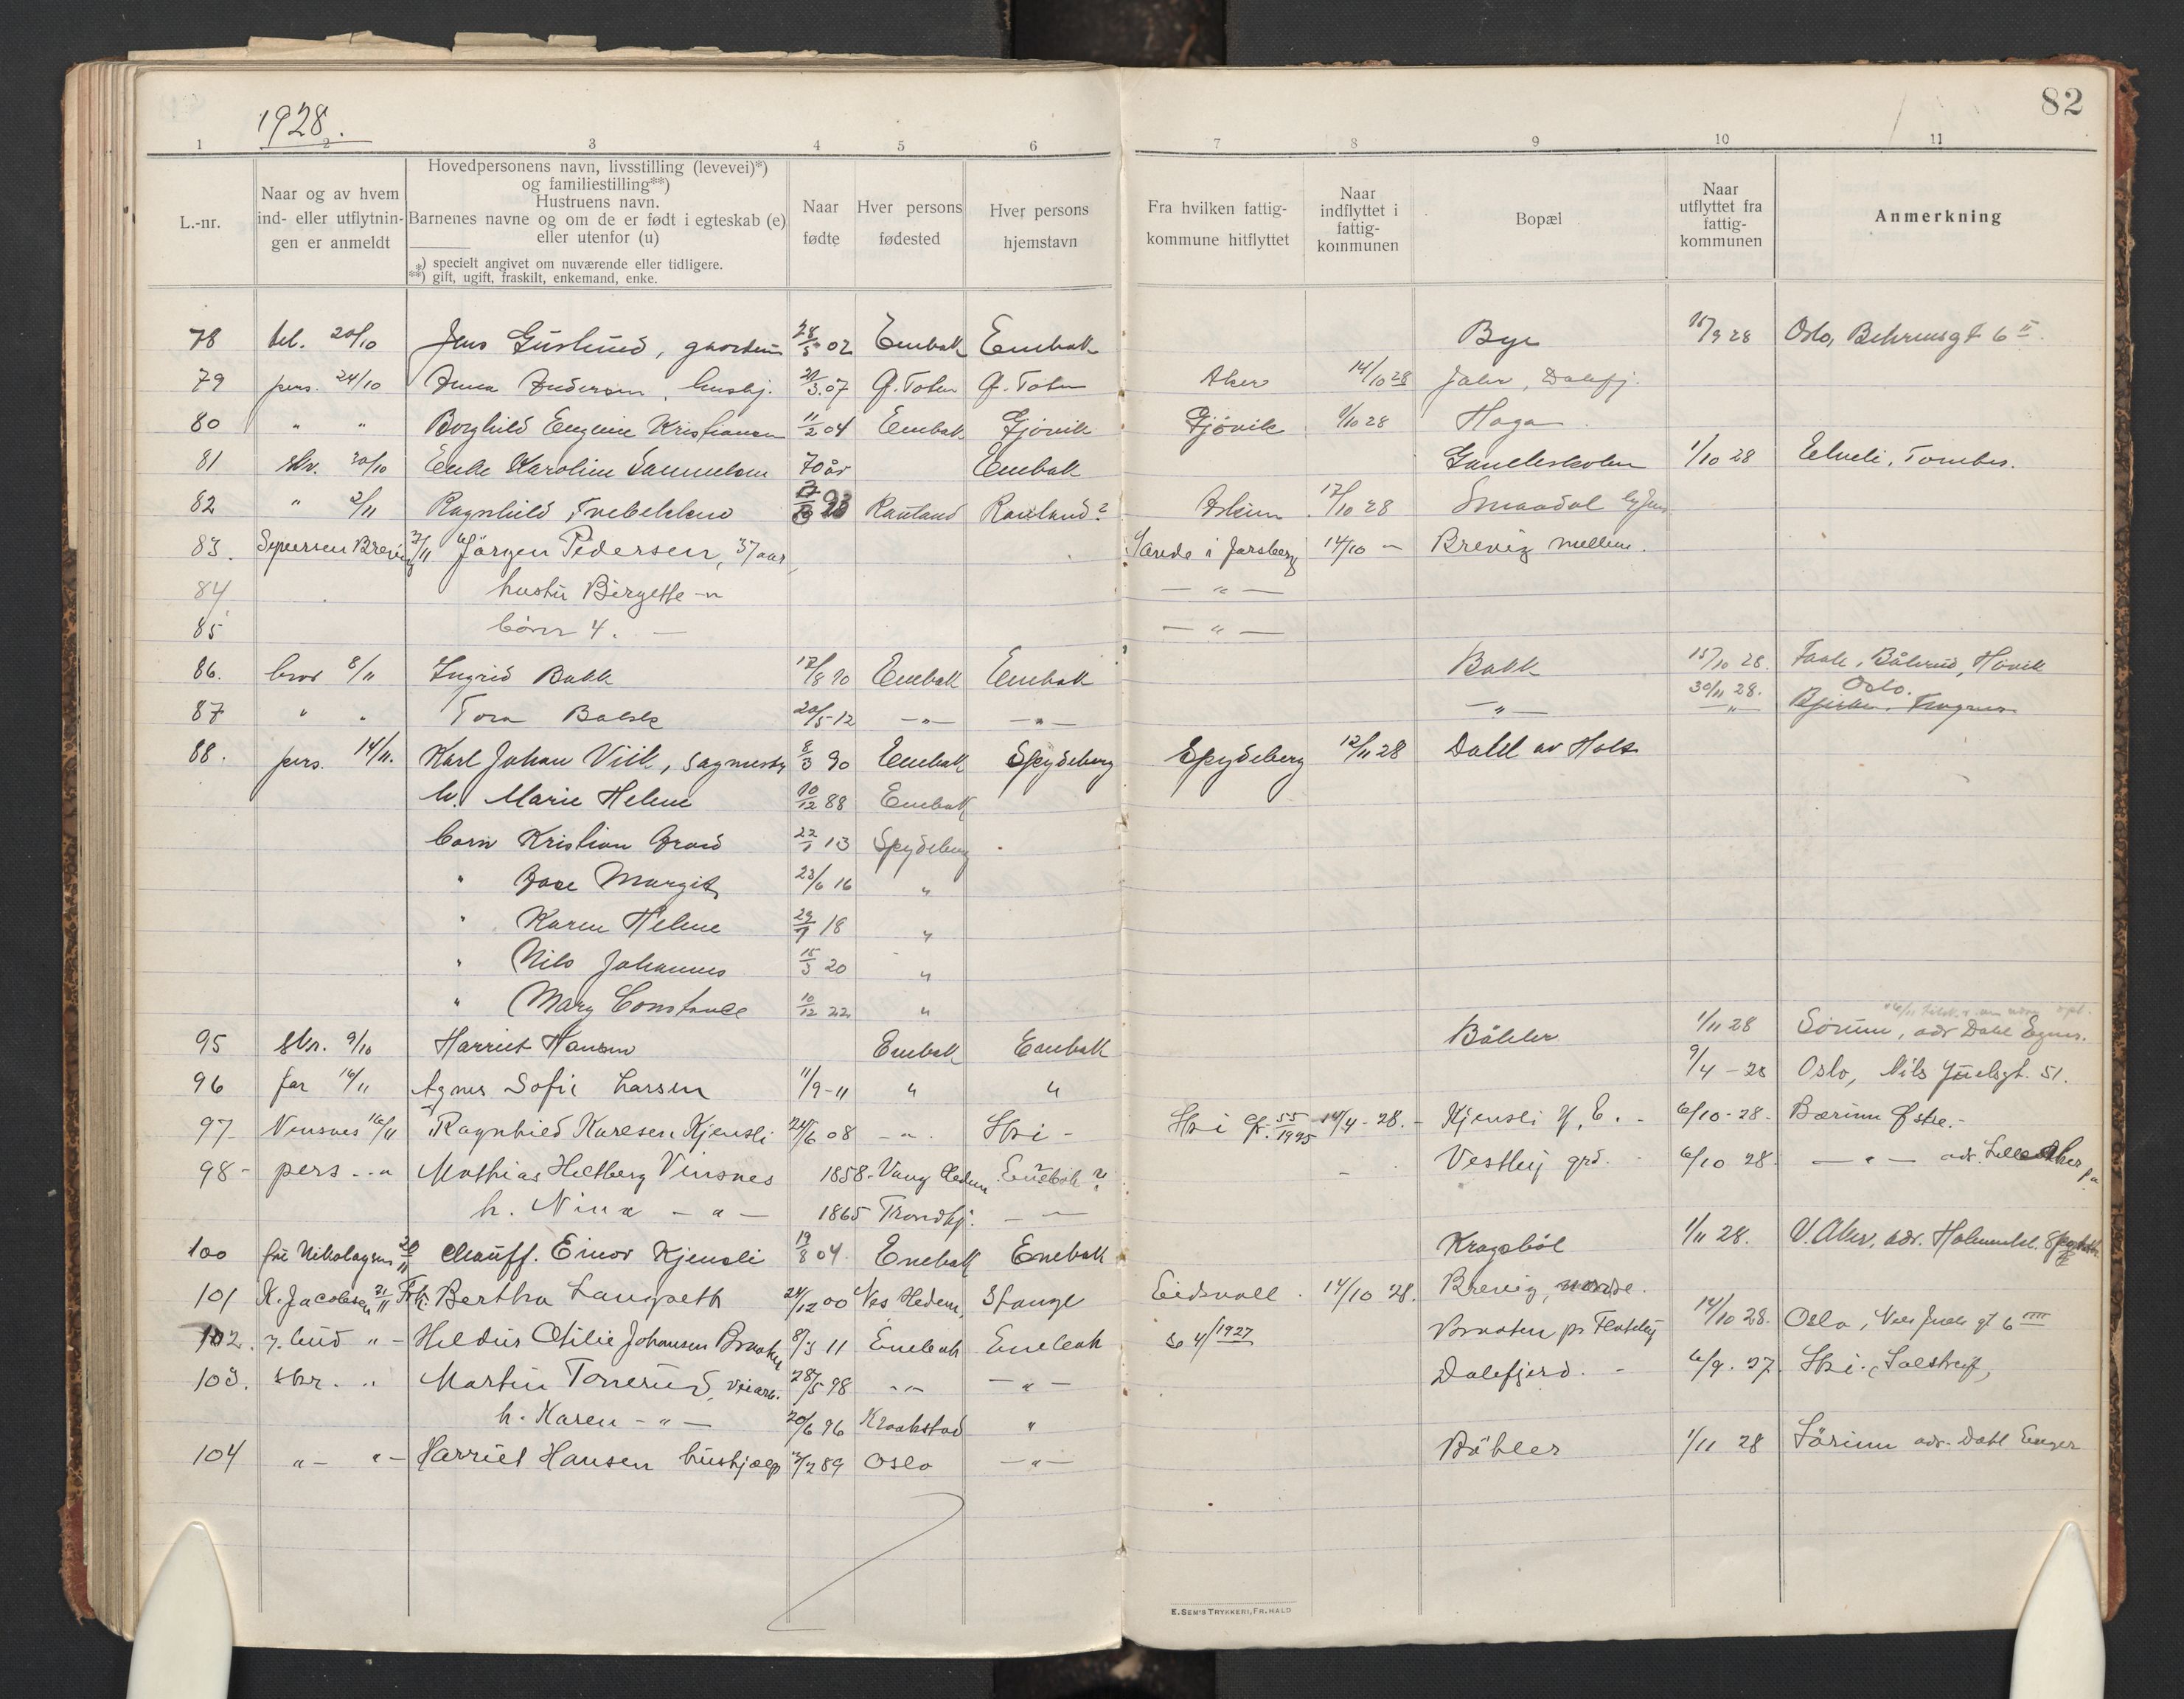 82
1928.
1 2 3 4 5 6 7 8 9 10 11
L.-nr.
Naar og av hvem
ind- eller utflytnin-
gen er anmeldt
Hovedpersonens navn, livsstilling (levevei)*)
og familiestilling**)
Hustruens navn.
Barnenes navne og om de er født i egteskab (e)
eller utenfor (u)
*) specielt angivet om nuværende eller tidligere.
**) gift, ugift, fraskilt, enkemand, enke.
Naar
fødte
Hver persons
fødested
Hver persons
hjemstavn
Fra hvilken fattig-
kommune hitflyttet
Naar
indflyttet i
fattig-
kommunen
Bopæl
Naar
utflyttet fra
fattig-
kommunen
Anmerkning
78 tel. 20/10 Jens Guslund, 28/5 02 Enebak Enebak Bye 15/9 28 Oslo, Behrensgt 6 II.
79 pers. 24/10 Anna Andersen, hushj. 20/3 07 Ø. Toten Ø. Toten Aker 14/10 28 Jahr, Dalefj.
80 " " Borghild Eugenie Kristiansen 11/2 04 Enebak Gjövik Gjövik 1/10 28 Haga
81 skr. 30/10 Enke Karoline Samuelsen 70 år Enebak 1/10 28 Elveli, Tombes.
82 " 2/11 Ragnhild 93 Rauland Rauland? Askim 17/10 28 Smaadal
83. Brevig 7/11 Jörgen Pedersen, 37 aar i Jarsberg 14/10 - Brevig mellem.
84 hustru Birgette -"- - " -
85 börn 4. - - " -
86. bror 8/11 Ingrid Bakk 17/8 90 Enebak Enebak Bakk 15/10 28. Hövik
87 " " Tora Bakk 20/5-12 - " - - " - - " - 30/11 28. Oslo.
88. pers. 14/11. Karl Johan Viik, sagmester 8/3 90 Enebak Spydeberg Spydeberg 12/11 28 Dahl av Hals
h. Marie Helene 10/12 88 Enebak
barn Kristian 22/1 13 Spydeberg
" Margit 23/6 16 "
" Karen Helene 29/7 18 "
" Nils Johannes 15/3 20 "
" Mary Constance 10/12 22 "
95 skr. 9/10 Harriet Hansen Enebak Enebak Böhler 1/11 28 Sörum, adr Dahl
96 far 16/11 Agnes Sofie Larsen 11/9-11 " " 9/4 - 28 Oslo, Nils Juelsgt. 51.
97- Vinsnes 16/11 Ragnhild Karesen Kjensli 24/6 08 - " - Ski - Ski 14/4 - 28. - Kjensli Y. E. - 6/10 - 28 - Bærum Östre. -
98- pers - " Mathias Heltberg Vinsnes 1858. Vang Hedem. Enebak? Vestby grd. 6/10 28. - " - adr. Lilleaker
h. Nina - " - 1865 Trondhj. - " -
100 fru Nikolaysen 20/11 Chauff. Einar Kjensli 19/8 04. Enebak Enebak Kragsböl 1/11 28. V. Aker, adr.
101 K. Jacobsen 21/11 Frk. Bertha Langseth 24/12 00 Nes Hedem. Stange Eidsvoll. 14/10 28. Brevig, nordre.
102. Hildur Otilie Johansen Braaten 8/3 11 Enebak Enebak se 4/1927 Braaten 14/10 28. Oslo, Nils Juels gt 6
103. skr. " Martin Tonerud, veiarb. 28/5 98 - " - - " - Dalefjerd. - 6/9. 27. Ski.
h. Karen - " - 20/6 96 Kraakstad "
104 " - " - Harriet Hansen hushjælp 3/2 89 Oslo - " - Böhler 1/11 28 Sörum adr. Dahl Enger
E. SEM'S TRYKKERI, FR.HALD